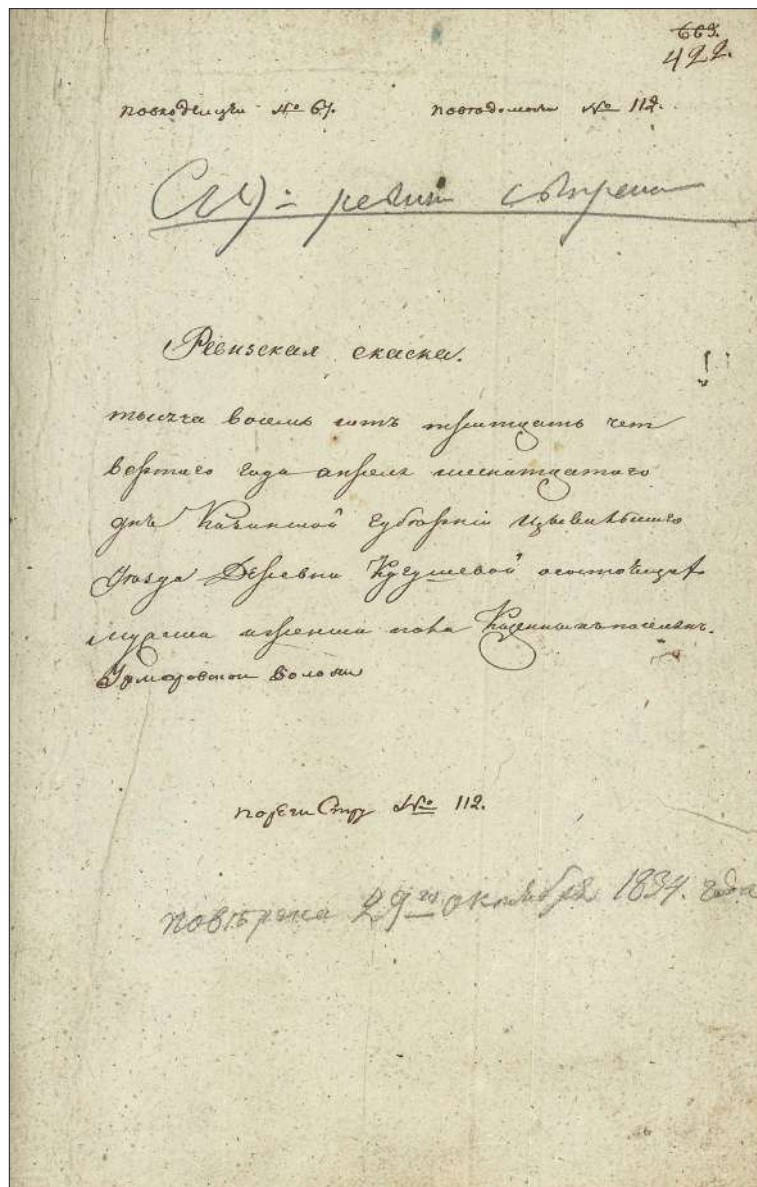 669.
422.
№ 67. № 112.
Съ 7й ревизіи сверена
Ревизская скаска.
тысеча восемь сотъ тритцать чет
вертого года апреля шеснатцатого
дня Казанской губернии Цывильского
уезда Деревни Кугушевой осостоящих
мужска и женска пола Казенныхъ поселянъ.
Урмаровской волости
пореги Стру № 112.
Поверена 29го октября 1834. года